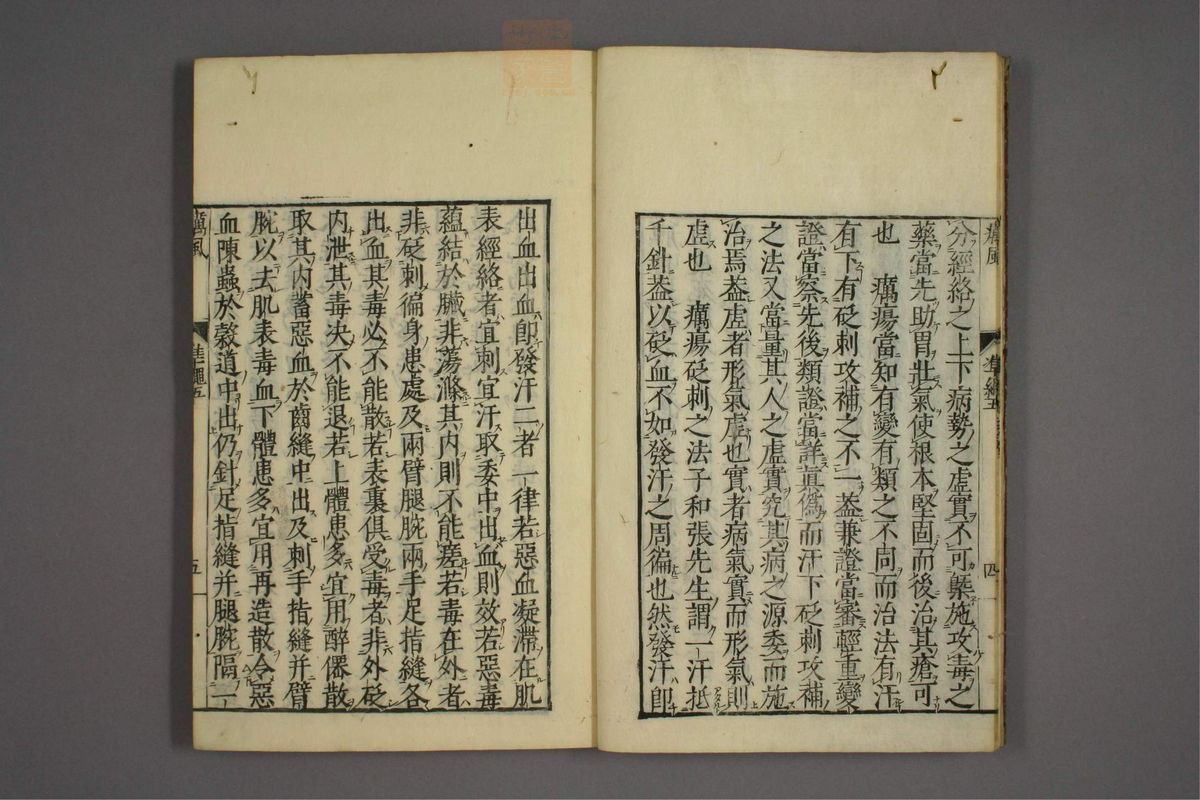 癘風
準繩五
四
分經絡之上下病勢之虛實不可槩施攻毒之
藥當先助胃壯氣使根本堅固而後治其瘡可
也　癘瘍當知有變有類之不同而治法有汗
有下有砭刺攻補之不一葢兼證當審輕重變
證當察先後類證當詳眞僞而汗下砭刺攻補
之法又當量其人之虛實究其病之源委而施
治焉葢虛者形氣虛也實者病氣實而形氣則
虛也　癘瘍砭刺之法子和張先生謂一汗抵
千針葢以砭血不如發汗之周徧也然發汗卽
出血出血卽發汗二者一律若惡血凝滯在肌
表經絡者宜刺宜汗取委中出血則效若惡毒
蘊結於臟非蕩滌其內則不能瘥若毒在外者
非砭刺徧身患處及兩臂腿腕兩手足指縫各
出血其毒必不能散若表裏俱受毒者非外砭
內泄其毒决不能退若上體患多宜用醉僊散
取其內蓄惡血於齒縫中出及刺手指縫并臂
腕以去肌表毒血下體患多宜用再造散令惡
血陳蟲於穀道中出仍針足指縫并腿腕隔一
癘風
準繩五
五